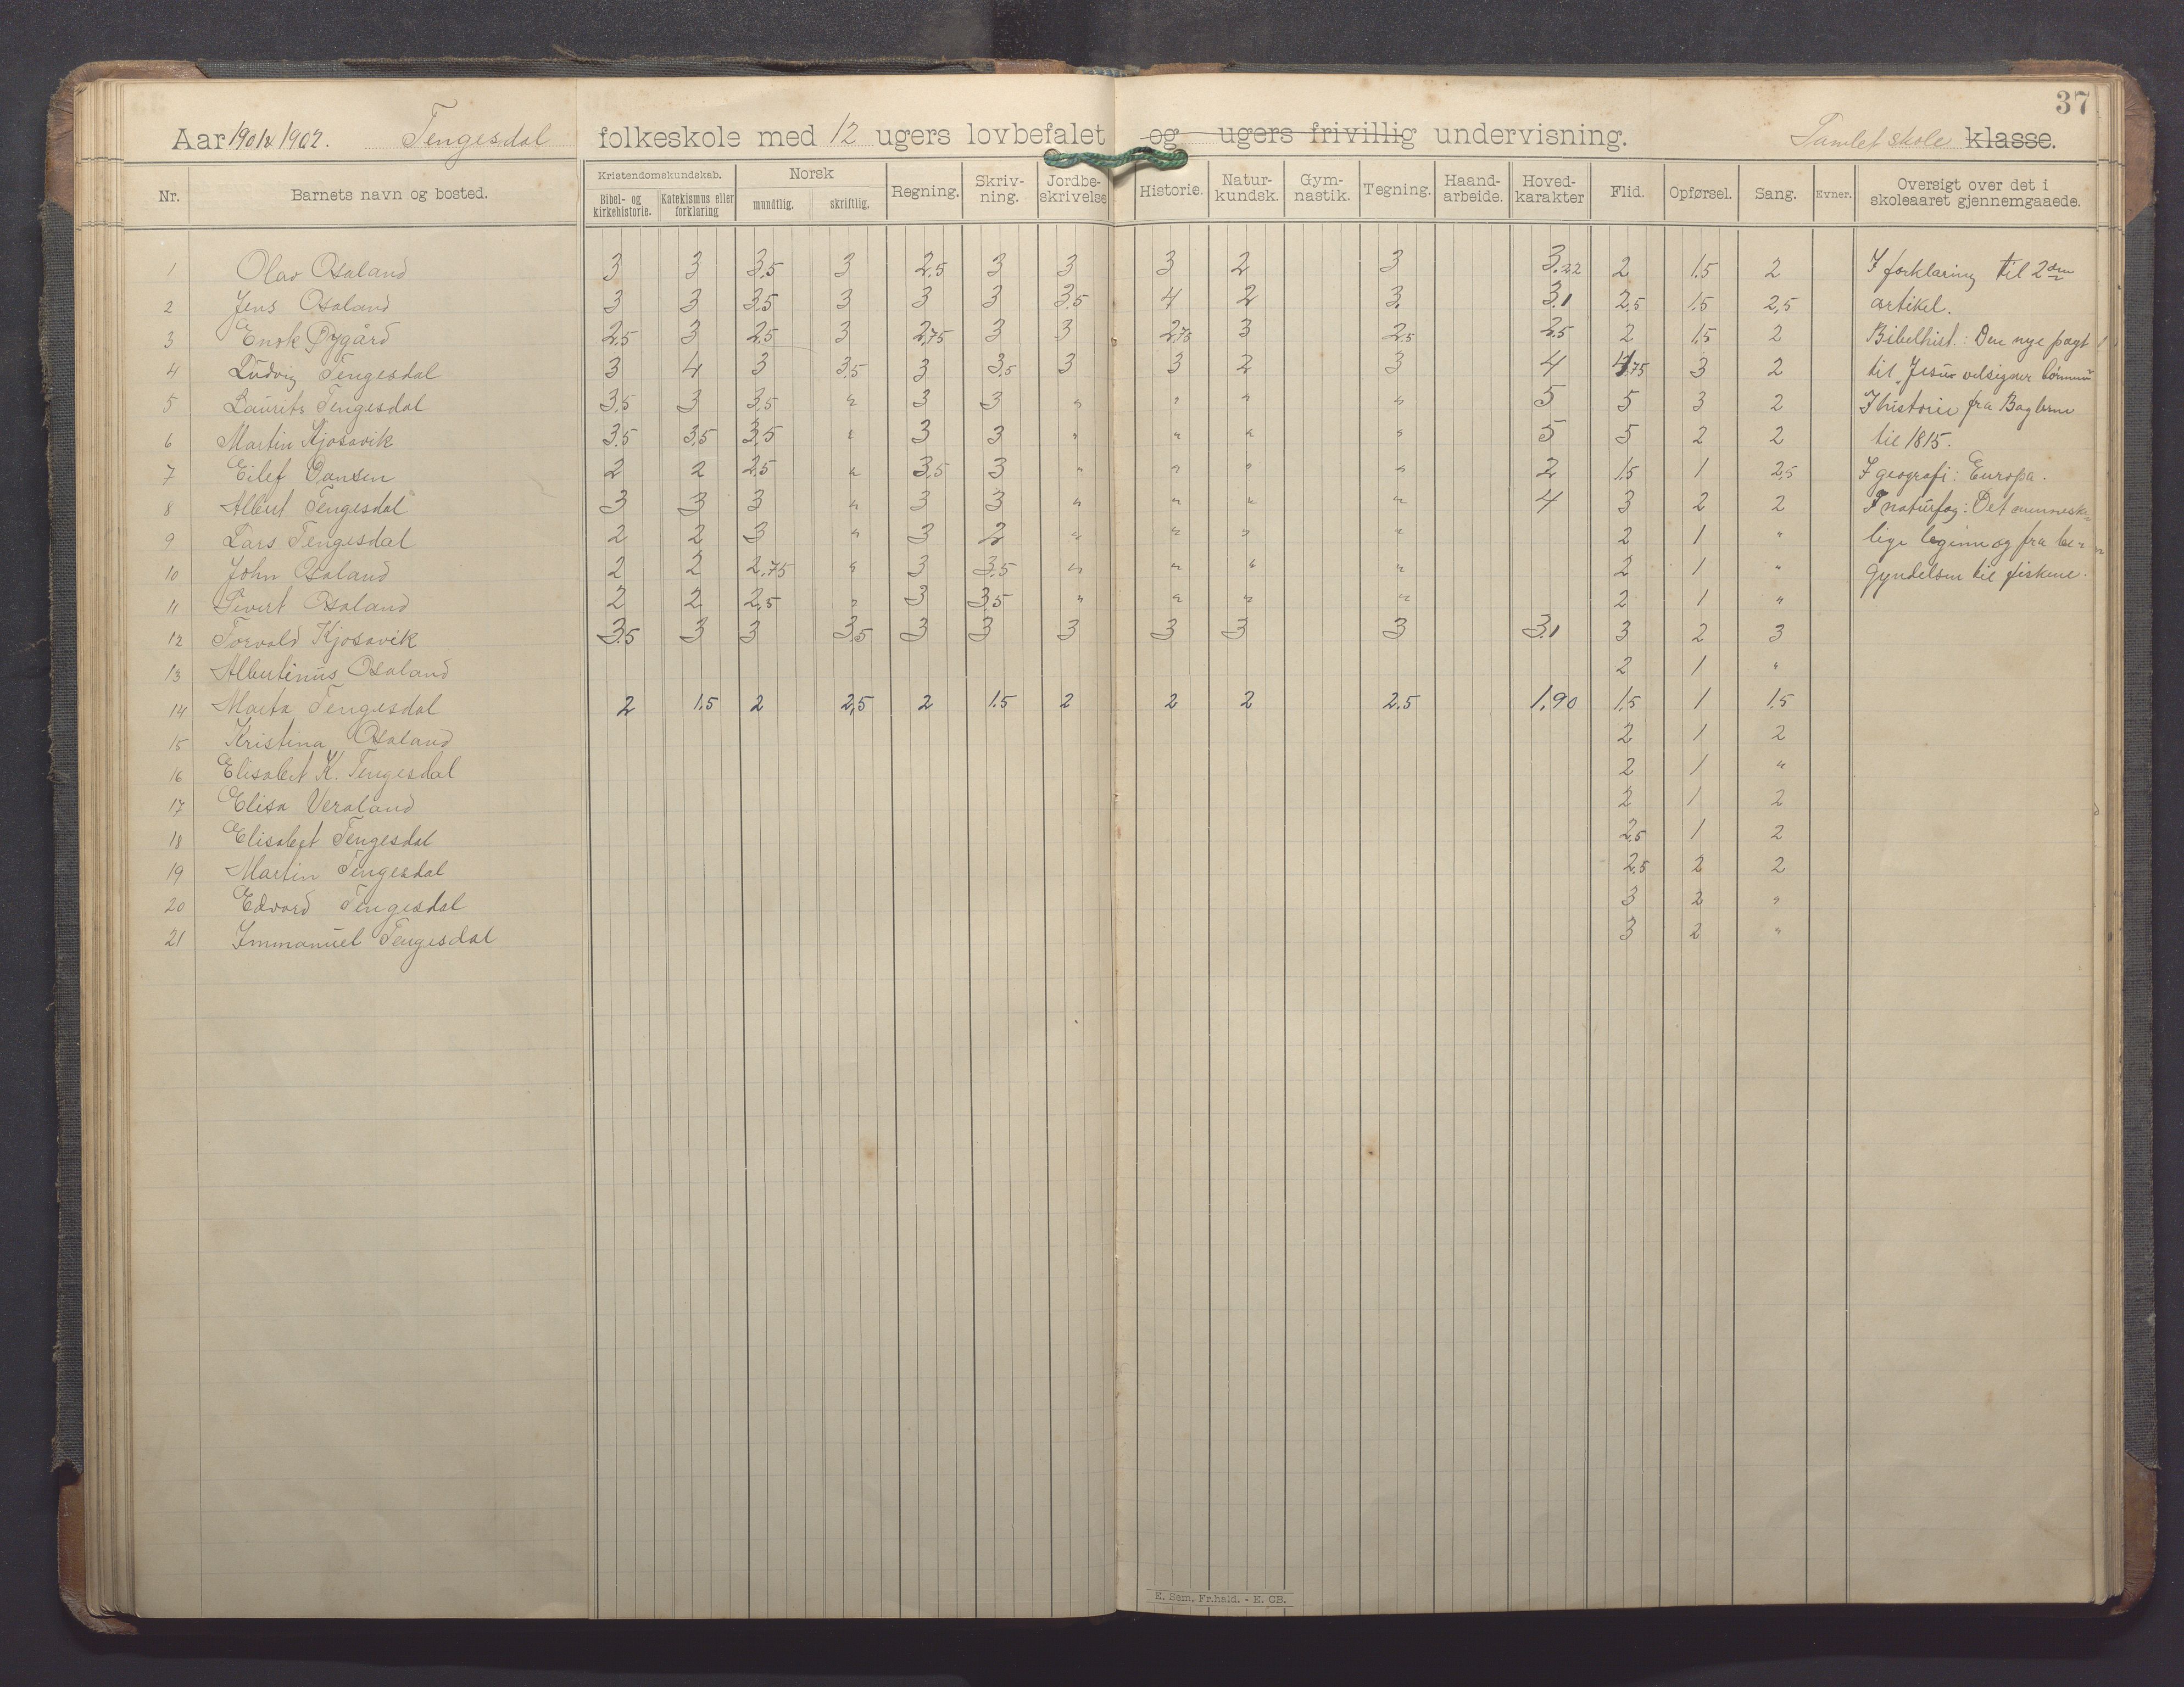 37
Aar 1901 & 1902. Tengesdal folkeskole med 12 ugers lovbefalet og ugers frivillig undervisning. Samlet skole klasse.
Nr. Barnets navn og bosted. Kristendomskundskab. Bibel- og kirkehistorie. Katekismus eller forklaring Norsk mundtlig. skriftlig. Regning. Skriv-ning. Jordbe-skrivelse Historie. Natur-kundsk. Gym-nastik. Tegning. Haand-arbeide. Hoved-karakter Flid. Opførsel. Sang. Evner. Oversigt over det i skoleaaret gjennemgaaede.
1 Olav Osaland 3 3 3,5 3 2,5 3 3 3 2 3 3.22 2 1.5 2 I forklaring til 2den
2 Jens Osaland 3 3 3,5 3 3 3 3,5 4 2 3. 3.1 2,5 1,5 2,5 artikel.
3 Enok Øygård 2,5 3 2,5 3 2,75 3 3 2,75 3 2.5 2.5 2 1,5 2 Bibelhist.: Den nye pagt
4 Ludvig Tengesdal 3 4 3 3,5 3 3,5 3 3 2 3 4 4,75 3 2 til "Jesus velsigner børnene"
5 Laurits Tengesdal 3,5 3 3,5 " 3 3 " " " " 5 5 3 2 I historie fra Baglerne
6 Martin Kjosavik 3.5 3,5 3,5 " 3 3 " " " " 5 5 2 2 til 1815.
7 Eilef Hansen 2 2 2,5 " 3,5 3 " " " " 2 1,5 1 2,5 I geografi: Europa.
8 Albert Tengesdal 3 3 3 " 3 3 " " " " 4 3 2 2 I naturfag: Det menneske-
9 Lars Tengesdal 2 2 3 " 3 2 " " " " 2 1 " lige legeme og fra be-
10 John Osaland 2 2 2,75 " 3 3,5 " " " " 2 1 " gyndelsen til fiskene.
11 Sivert Osaland 2 2 2,5 " 3 3,5 " " " " 2 1 "
12 Torvald Kjosavik 3.5 3 3 3,5 3 3 3 3 3 3 3.1 3 2 3
13 Albertinus Osaland 2 1 "
14 Marta Tengesdal 2 1,5 2 2,5 2 1.5 2 2 2 2.5 1.90 1,5 1 1.5
15 Kristina Osaland 2 1 2
16 Elisabet K. Tengesdal 2 1 "
17 Elisa Veraland 2 1 2
18 Elisabet Tengesdal 2,5 1 2
19 Martin Tengesdal 2,5 2 2
20 Edvard Tengesdal 3 2 "
21 Immanuel Tengesdal 3 2 "
E. Sem, Fr.hald. - E. CB.